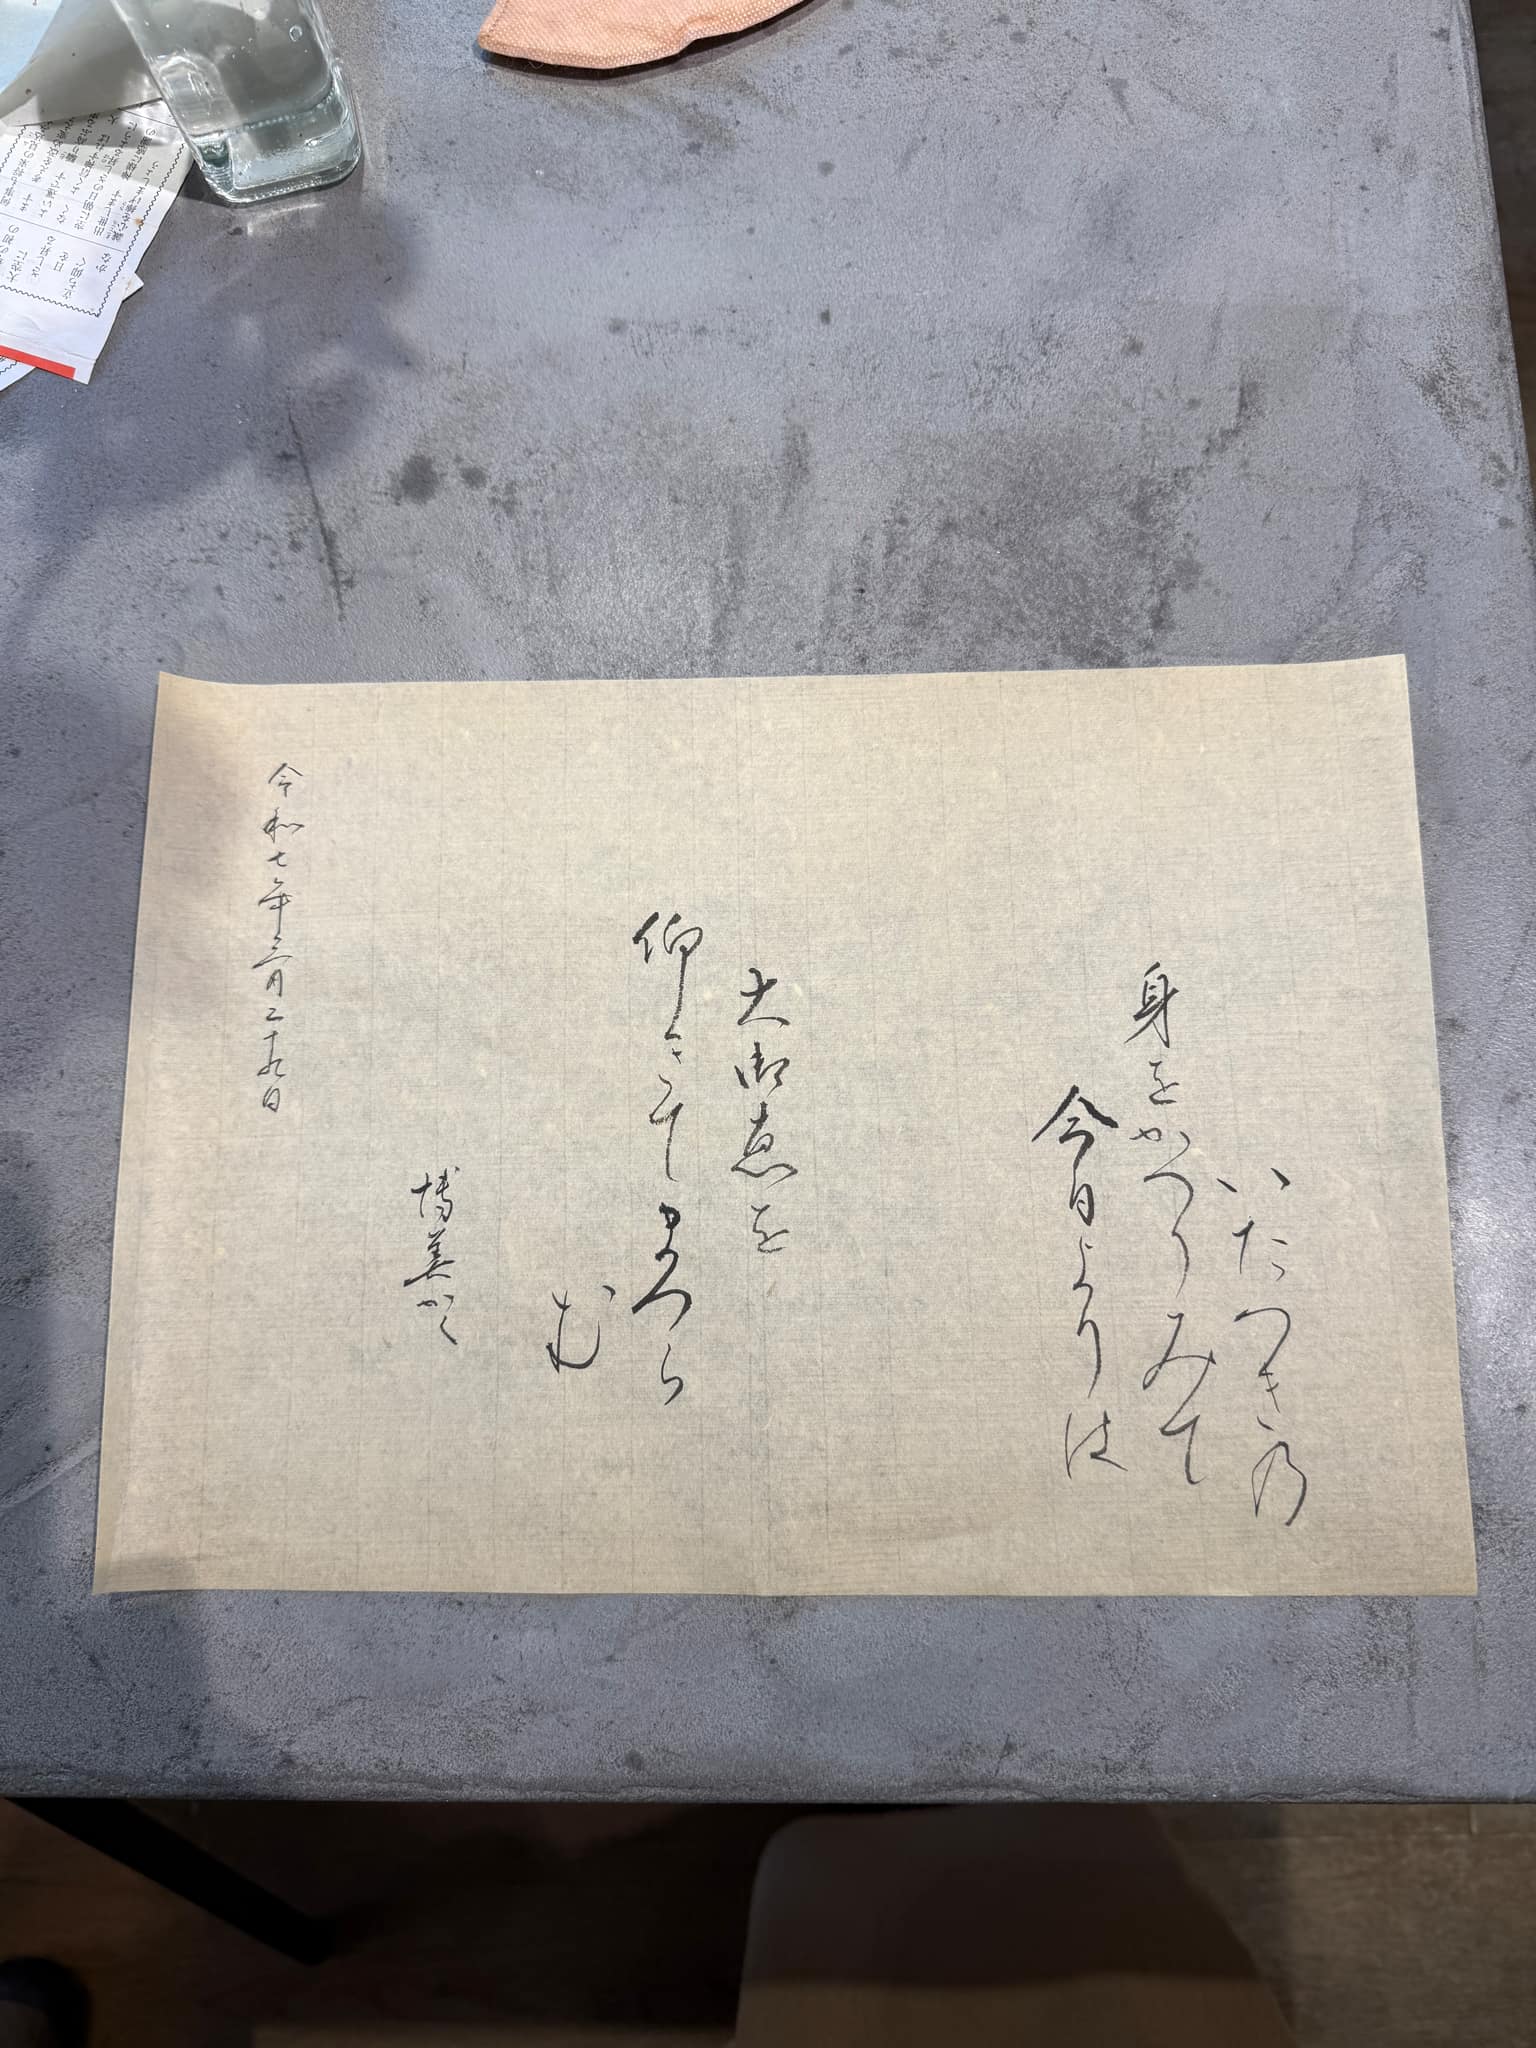 いたつき乃
身をかへりみて
今日よりは
大御恵を
仰きてまつら
む
博美かく
令和七年三月二十九日